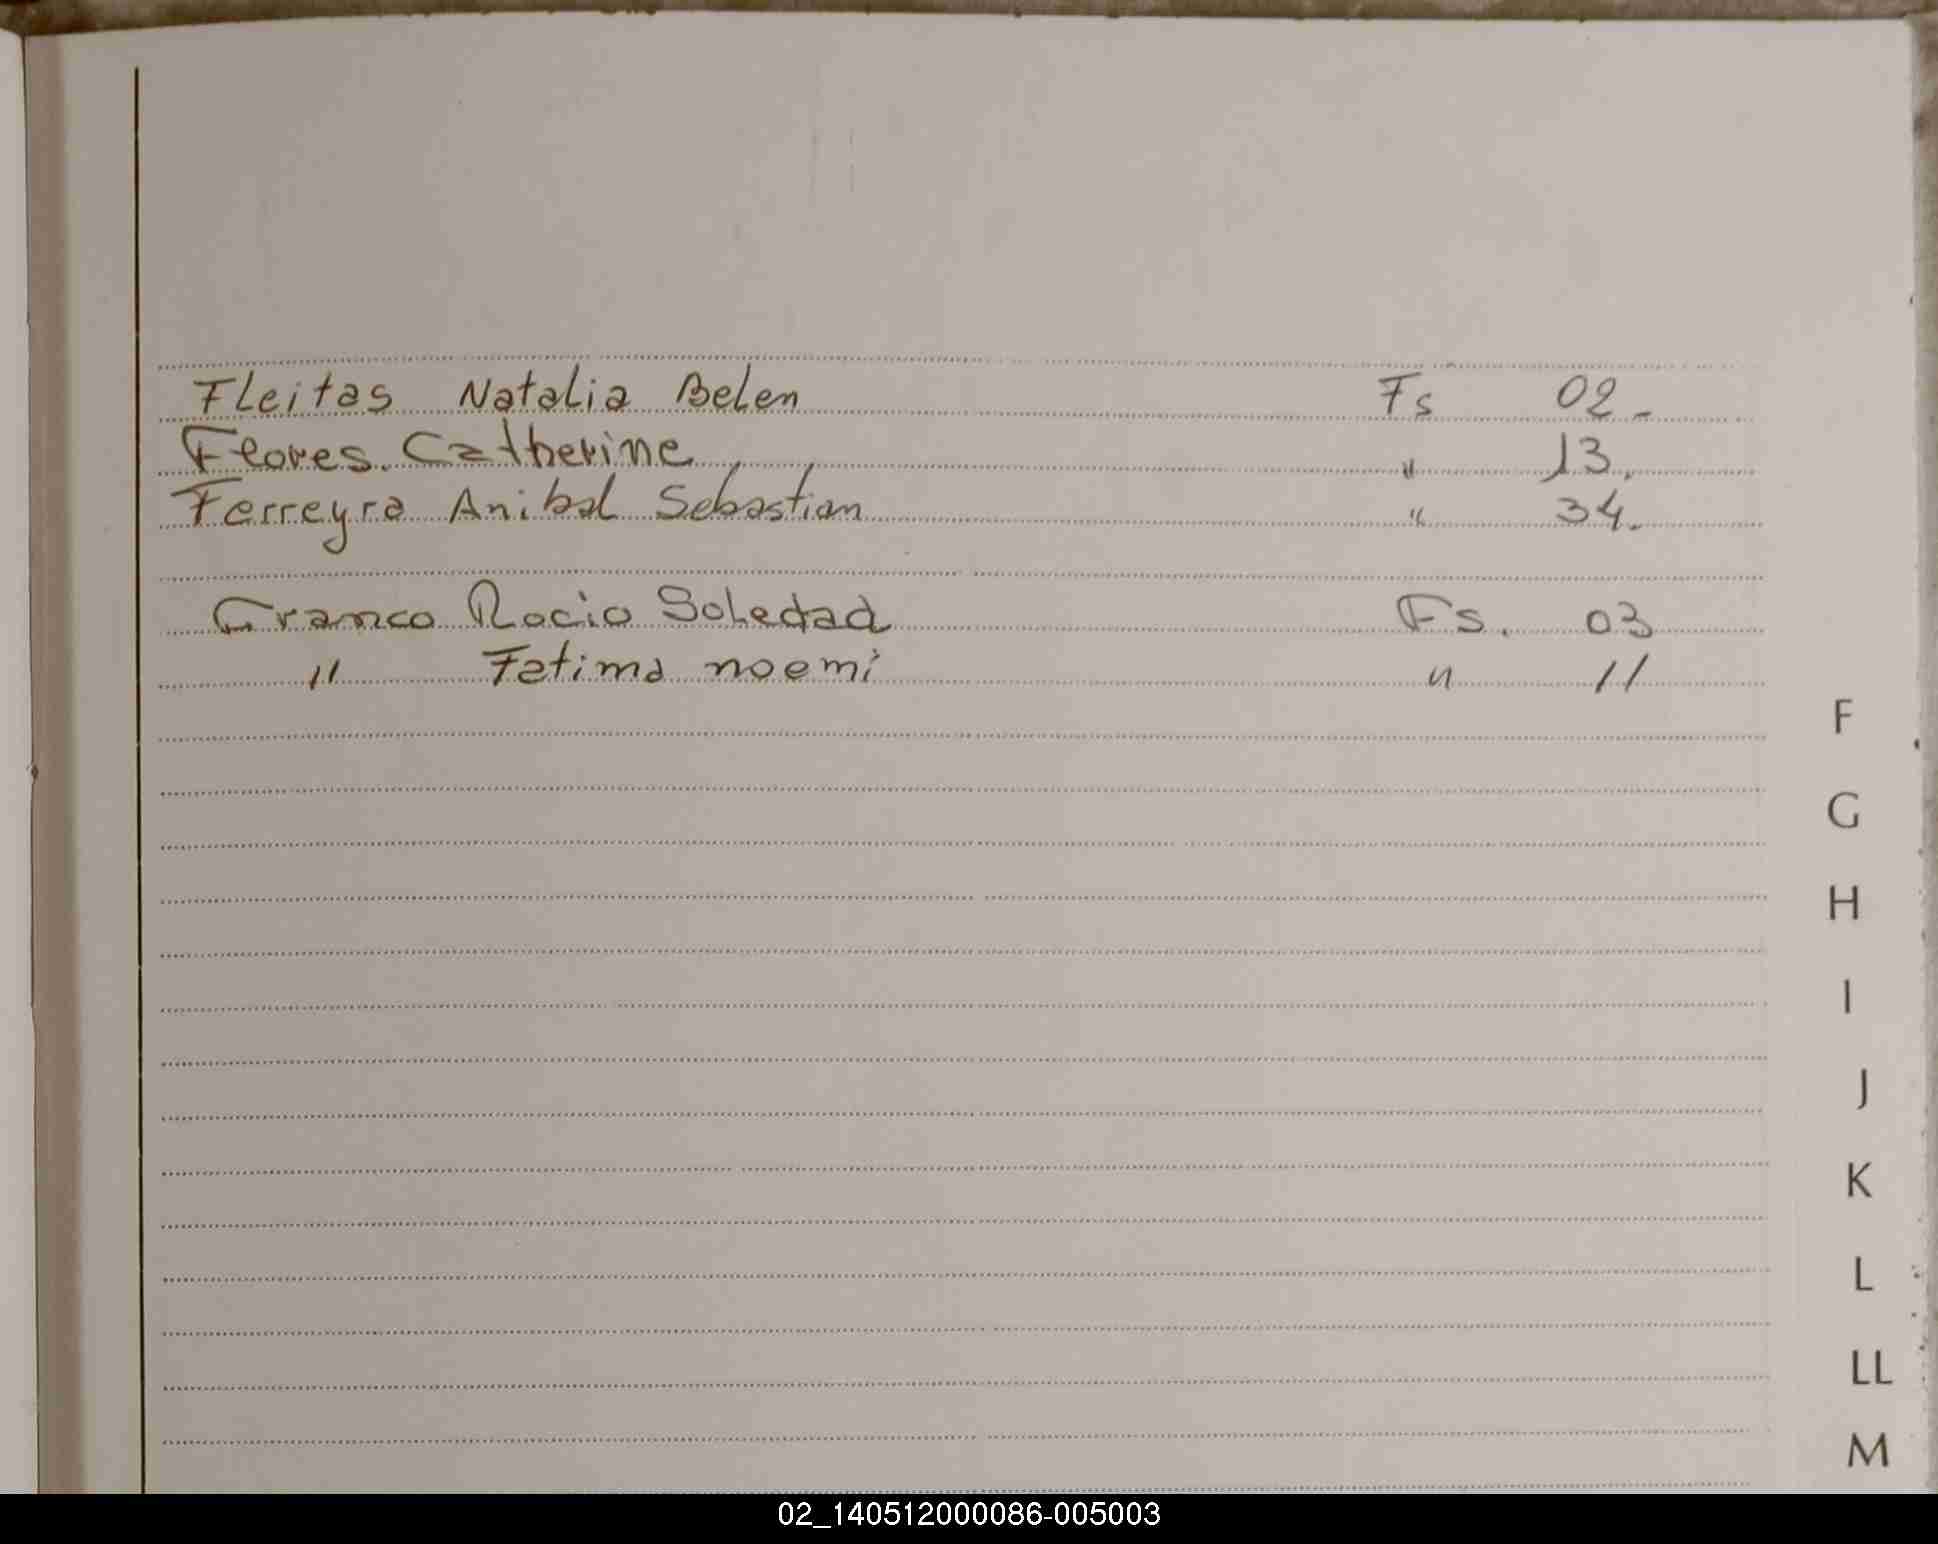 Fleitas Natalia Belen Fs 02-
Flores. Catherine " 13.
Ferreyra Anibal Sebastian " 34.
Franco Rocio Soledad Fs. 03
" Fatima noemi " 11
F
G
H
I
J
K
L
LL
M
02_140512000086-005003